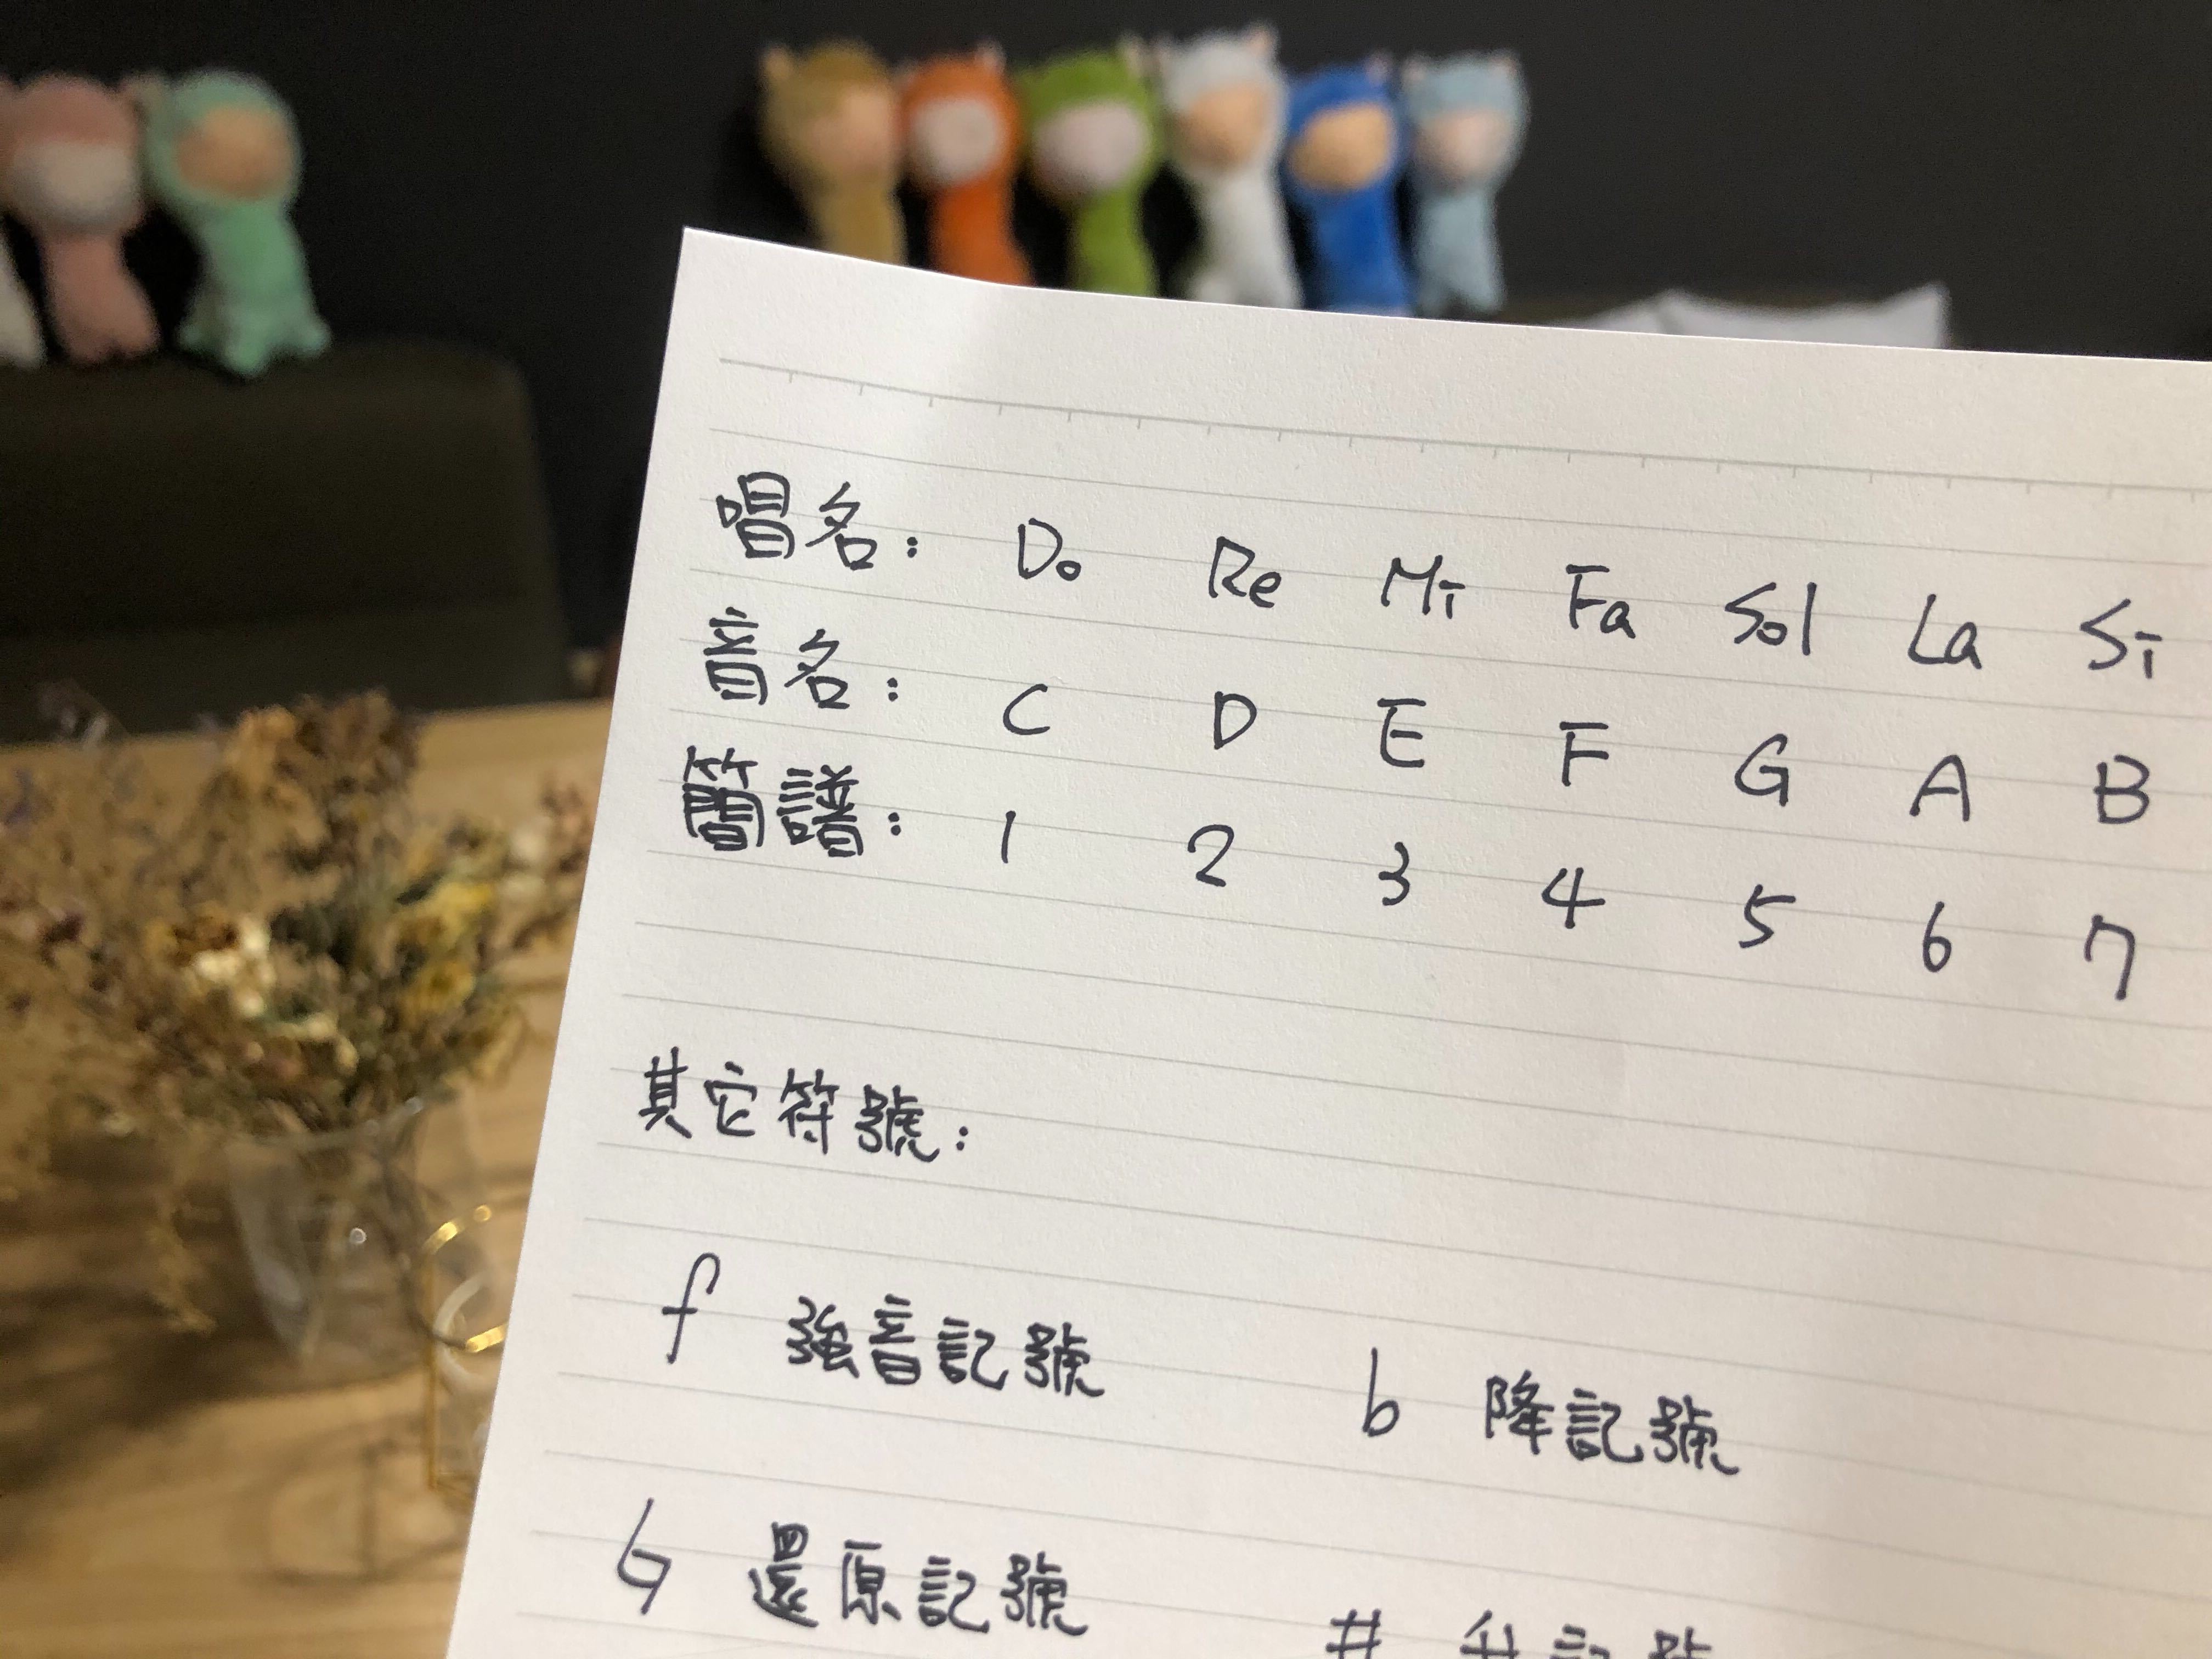 唱名： Do Re Mi Fa Sol La Si
音名： C D E F G A B
簡譜： 1 2 3 4 5 6 7
其它符號：
f 強音記號 b 降記號
♮ 還原記號 # 升記號